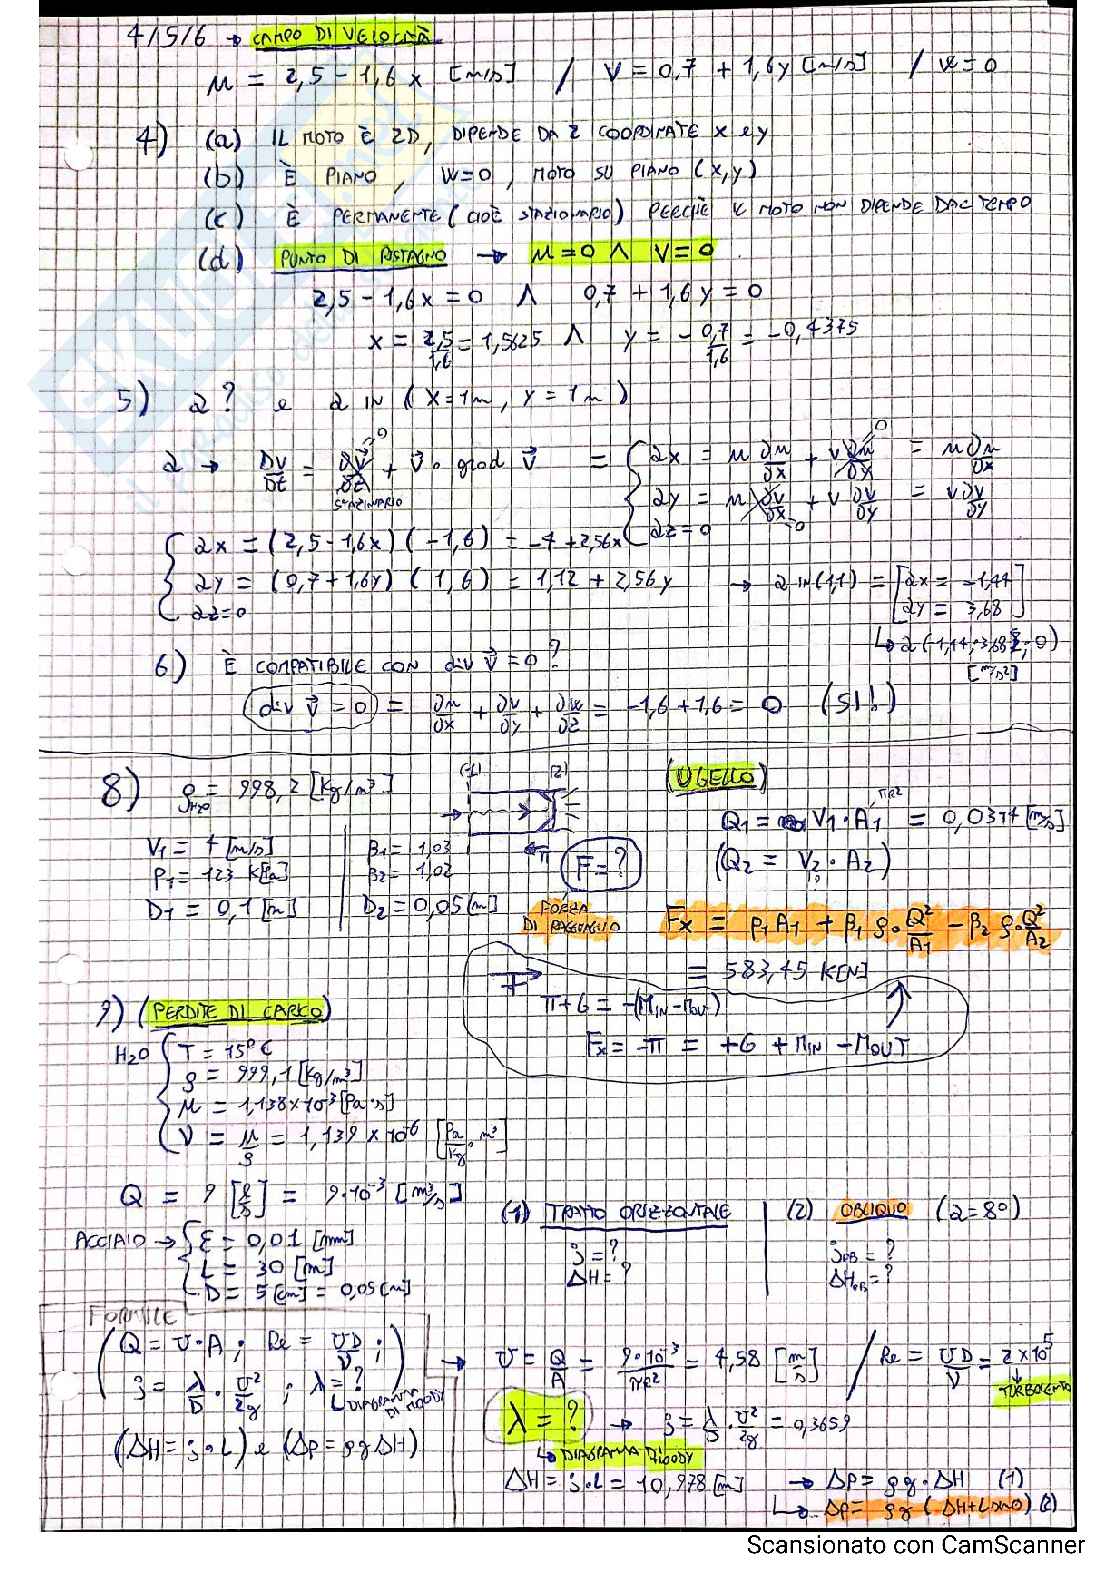 4/5/6 → CAMPO DI VELOCITÀ
u = 2,5 - 1,6 x [m/s] / V = 0,7 + 1,6y [m/s] / w = 0
4) (a) IL MOTO È 2D, DIPENDE DA 2 COORDINATE x e y
(b) È PIANO, W=0, MOTO SU PIANO (x,y)
(c) È PERMANENTE (CIOÈ STAZIONARIO) PERCHÈ IL MOTO NON DIPENDE DAL TEMPO
(d) PUNTO DI RISTAGNO → u=0 ∧ V=0
2,5 - 1,6x = 0 ∧ 0,7 + 1,6 y = 0
x = 2,5/1,6 = 1,5625 ∧ y = - 0,7/1,6 = - 0,4375
5) a? e a IN (x=1m, y=1m)
a → DV/Dt = ∂V⃗/∂t + V⃗ · grad V⃗ = { ax = u ∂u/∂x + v ∂u/∂y = u ∂u/∂x
STAZIONARIO
ay = u ∂v/∂x + v ∂v/∂y = v ∂v/∂y
az = 0
{ ax = (2,5 - 1,6x) (-1,6) = -4 + 2,56x
ay = (0,7 + 1,6y) (1,6) = 1,12 + 2,56 y → a IN (1,1) = [ ax = -1,44
az = 0
ay = 3,68 ]
↳ a (-1,44; 3,68; 0)
[m/s²]
6) È COMPATIBILE CON div V⃗ = 0 ?
div V⃗ = 0 = ∂u/∂x + ∂v/∂y + ∂w/∂z = -1,6 + 1,6 = 0 (SI!)
8) ρH2O = 998,2 [Kg/m³]
(1) (2)
(UGELLO)
V1 = 4 [m/s]
P1 = 123 K[Pa]
D1 = 0,1 [m]
β1 = 1,03
β2 = 1,02
D2 = 0,05 [m]
π
F = ?
FORZA
Q1 = V1 · A1 = 0,0314 [m³/s]
πR²
(Q2 = V2 · A2)
Fx = p1 A1 + β1 ρ · Q²/A1 - β2 ρ · Q²/A2
= 583,45 K[N]
π + G = -(MIN - MOUT)
Fx = -π = +G + MIN - MOUT
9) (PERDITE DI CARICO)
H2O { T = 15° C
ρ = 999,1 [Kg/m³]
μ = 1,138 × 10⁻³ [Pa · s]
ν = μ/ρ = 1,139 × 10⁻⁶ [Pa/Kg · m³]
Q = 9 [ℓ/s] = 9·10⁻³ [m³/s]
ACCIAIO → { ε = 0,01 [mm]
L = 30 [m]
D = 5 [cm] = 0,05 [m]
(1) TRATTO ORIZZONTALE
J = ?
ΔH = ?
(2) OBLIQUO (α = 8°)
JOB = ?
ΔHOB = ?
FORMULE
(Q = U · A ; Re = UD/ν ;
J = λ/D · U²/2g ; λ = ?)
↳ DIAGRAMMA DI MOODY
(ΔH = J · L) e (Δp = ρg ΔH)
→ U = Q/A = 9·10⁻³/πR² = 4,58 [m/s] / Re = UD/ν = 2 × 10⁵
↓ TURBOLENTO
λ = ? → J = λ/D · U²/2g = 0,3659
↳ DIAGRAMMA MOODY
ΔH = J · L = 10,978 [m] → Δp = ρg · ΔH (1)
↳ Δp = ρg (ΔH + L sinα) (2)
Scansionato con CamScanner